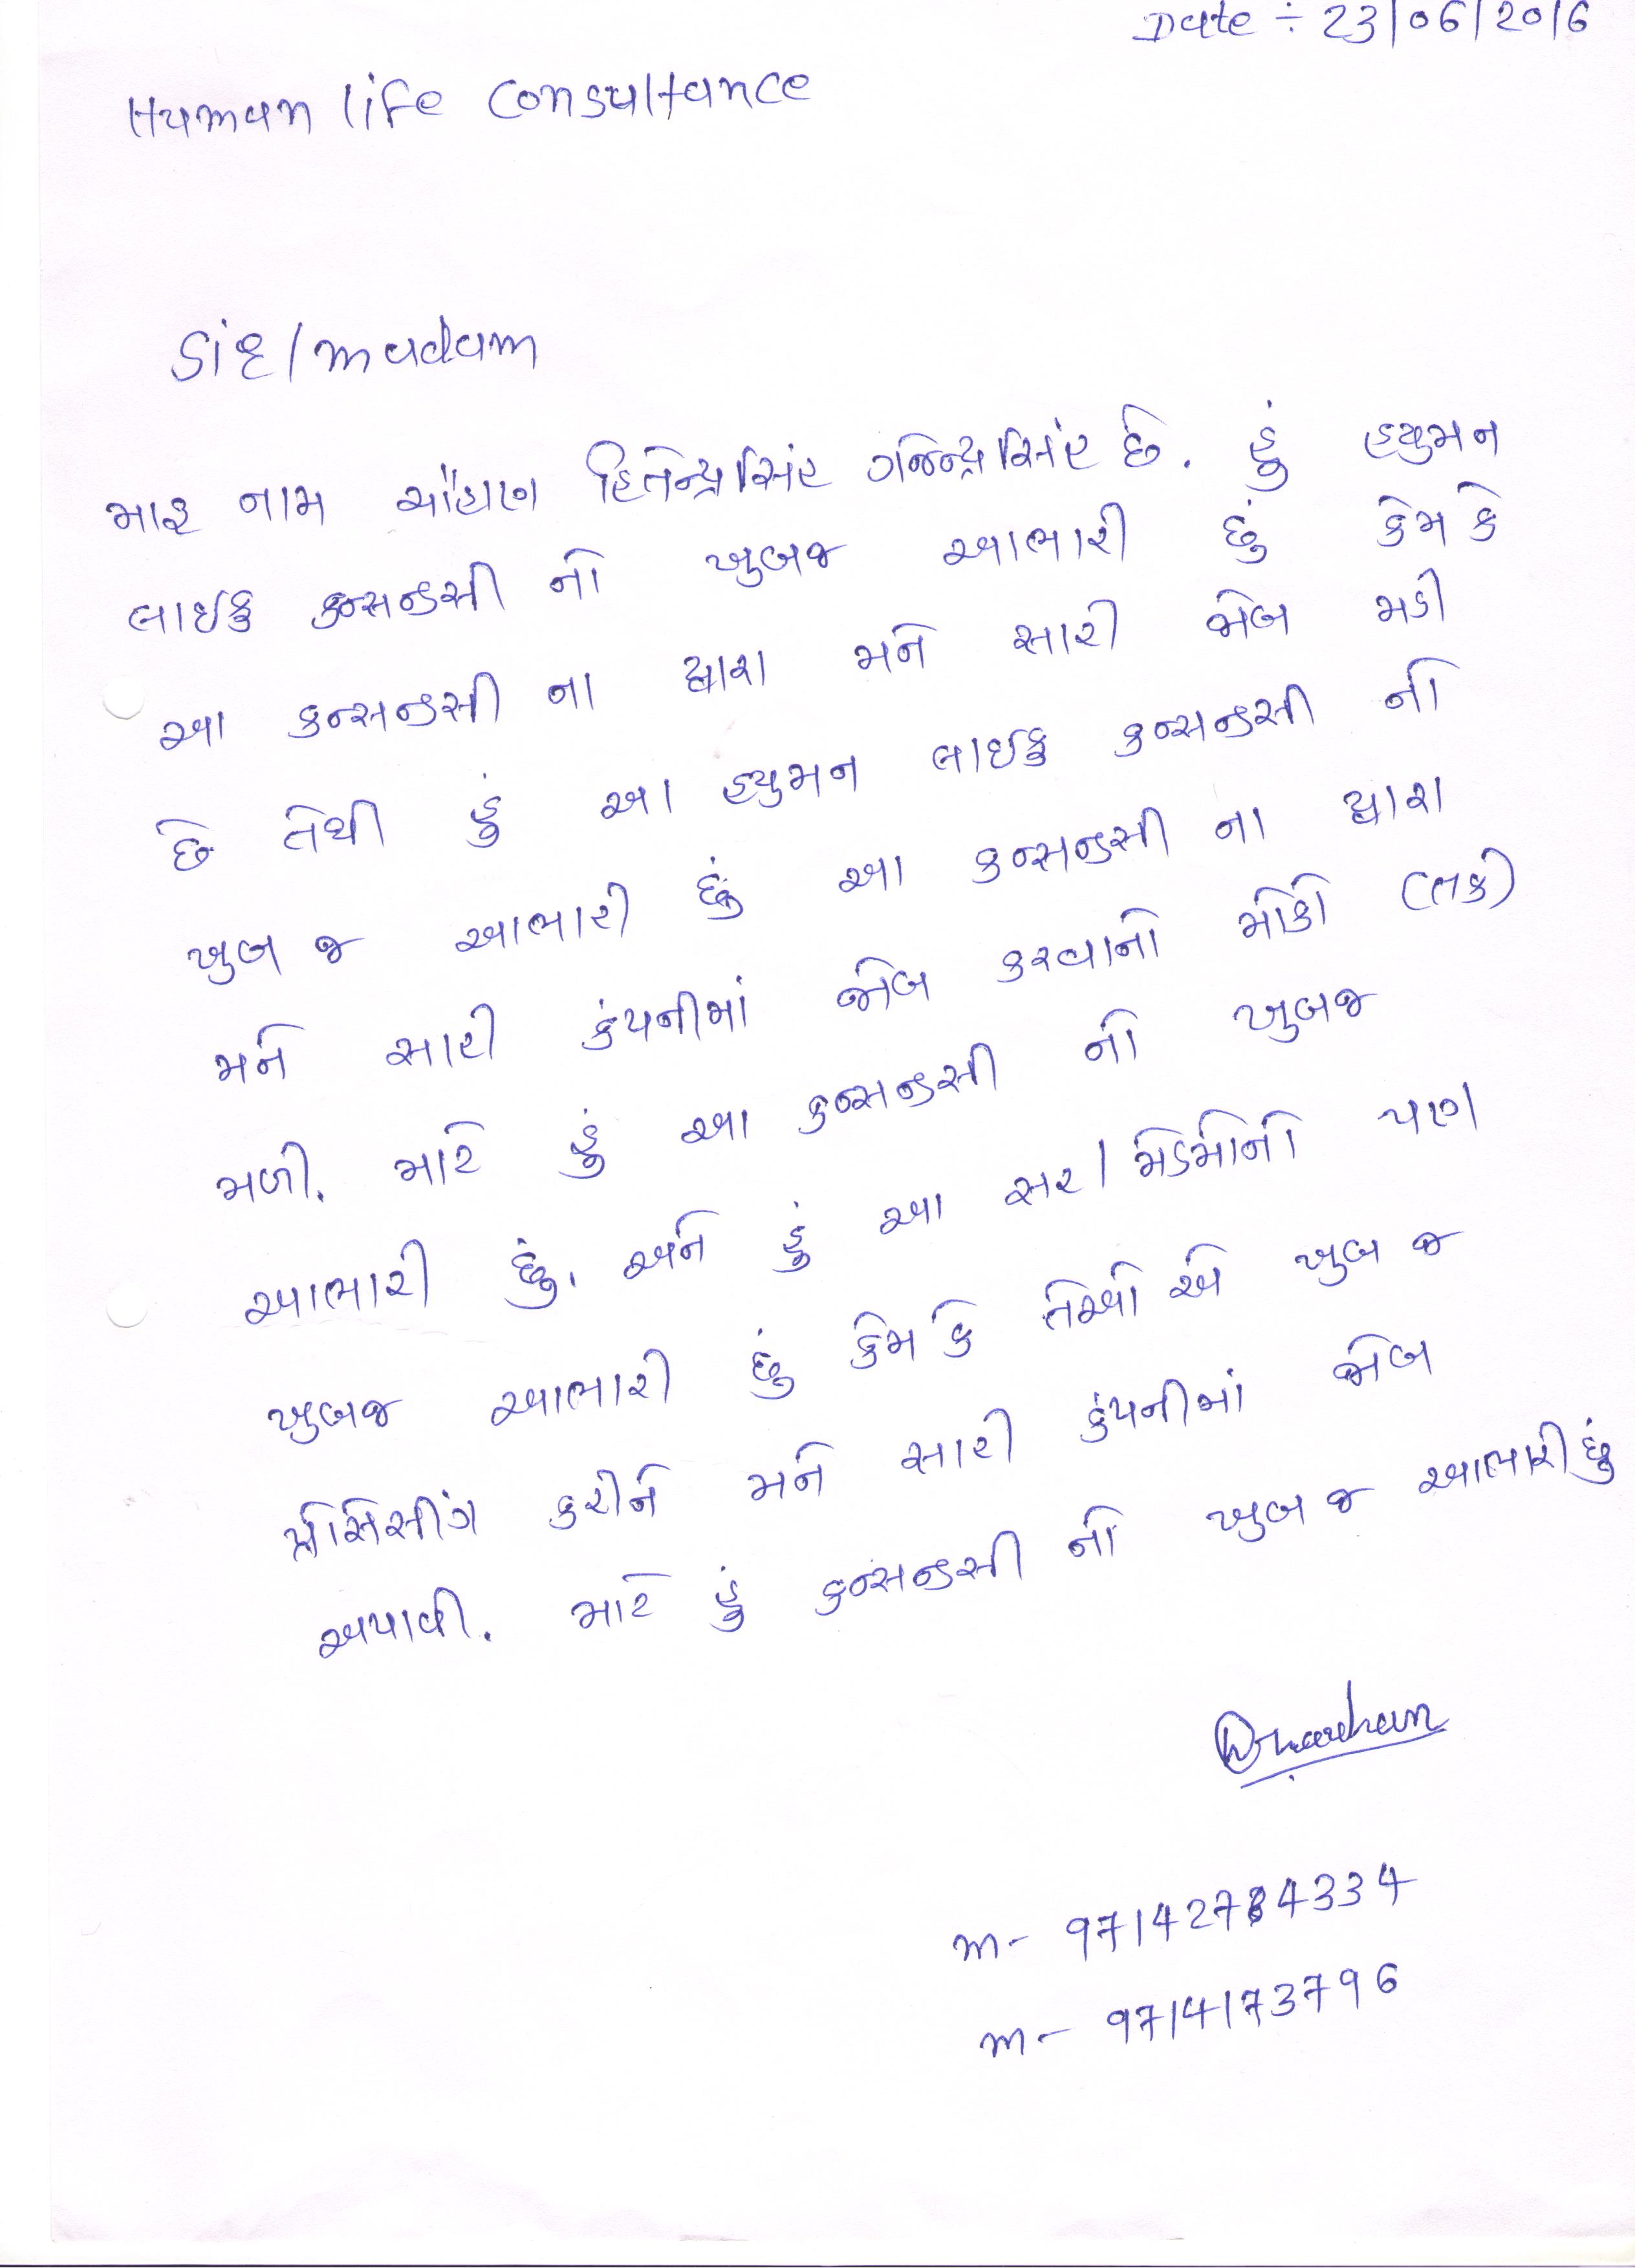 Date ÷ 23/06/2016
Human life Consultance
Sir/madam
મારૂ નામ ચૌહાણ હિતેન્દ્રસિંહ ગજેન્દ્રસિંહ છે. હું હયુમન
લાઇફ કન્સન્ડસી નો ખુબજ આભારી છું કેમ કે
આ કન્સન્ડસી ના દ્વારા મને સારી જોબ મડી
છે તેથી હું આ હયુમન લાઇફ કન્સન્ડસી નો
ખુબ જ આભારી છું આ કન્સન્ડસી ના દ્વારા
મને સારી કંપનીમાં જોબ કરવાનો મોકો (તક)
મળી. માટે હું આ કન્સન્ડસી નો ખુબજ
આભારી છું. અને હું આ સર/મેડમોનો પણ
ખુબજ આભારી છું કેમ કે તેઓ એ ખુબ જ
પ્રોસેસીંગ કરીને મને સારી કંપનીમાં જોબ
અપાવી. માટે હું કન્સન્ડસી નો ખુબ જ આભારી છું
m- 9714173796